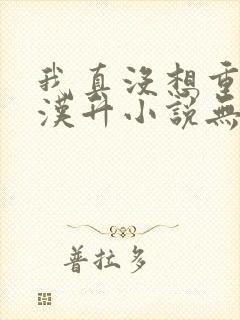 我真沒想重
漢升小說無
普拉多